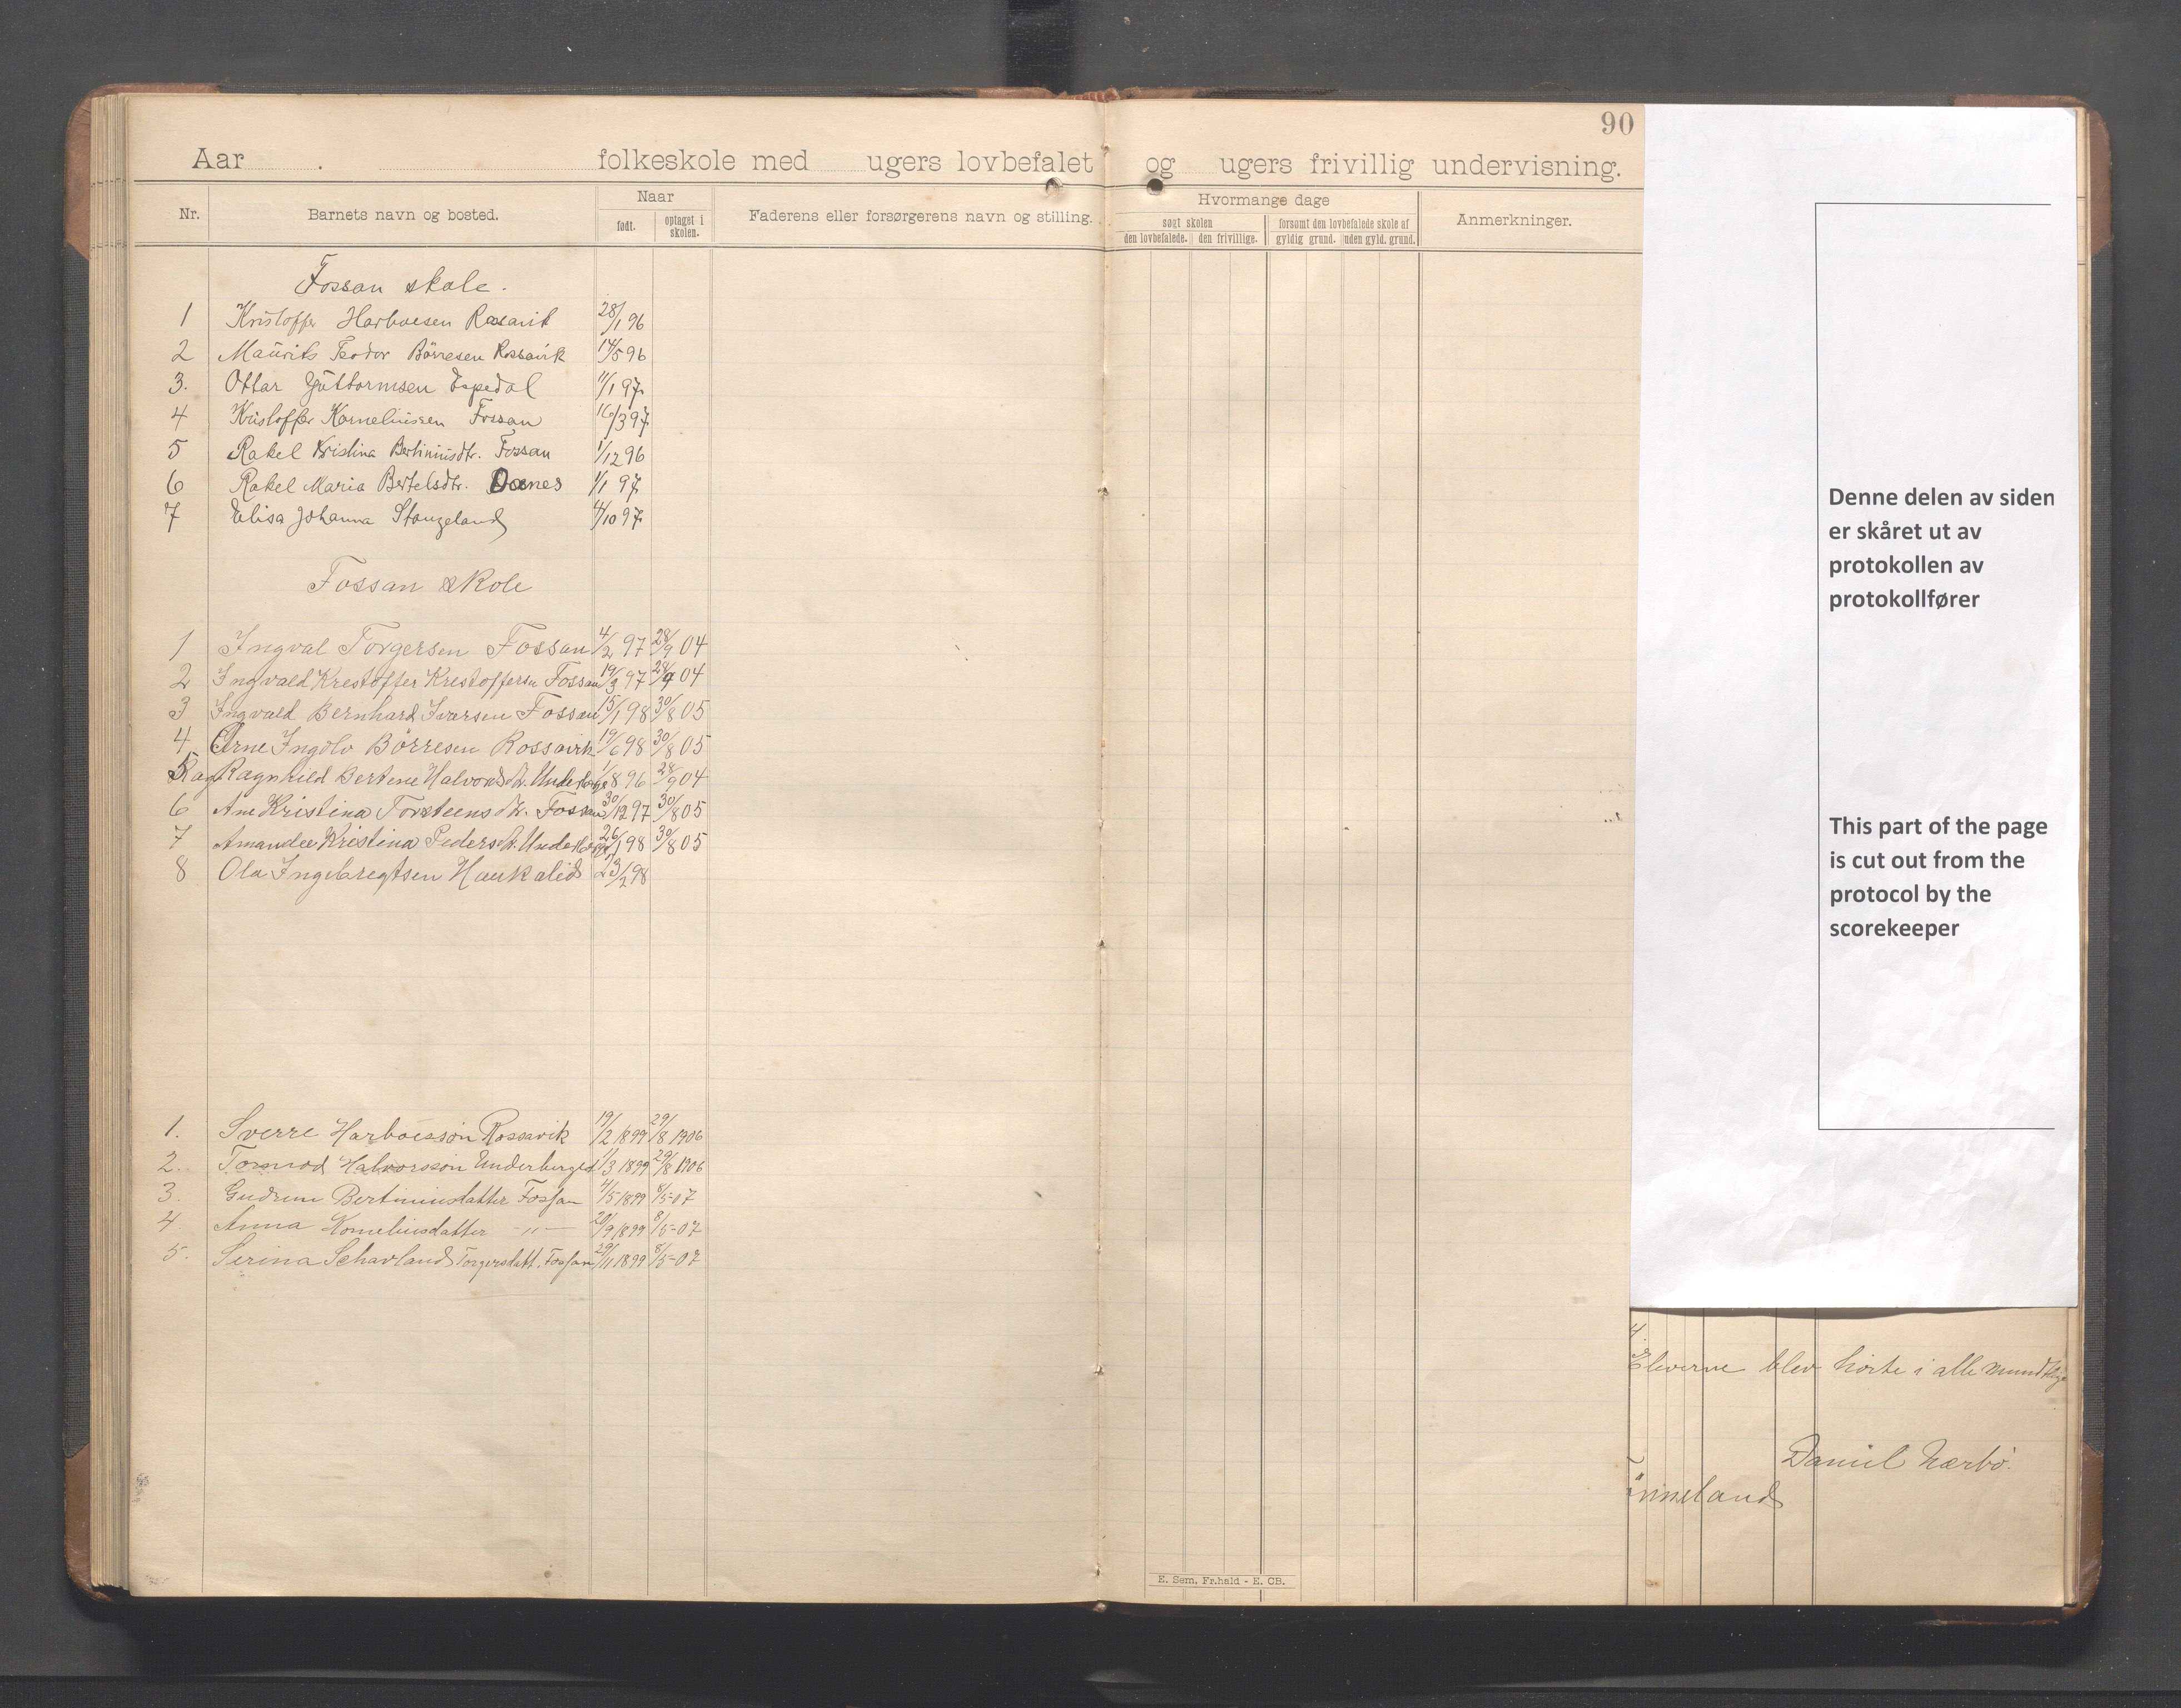 90
Aar . folkeskole med ugers lovbefalet og ugers frivillig undervisning.
Nr. Barnets navn og bosted. Naar født. optaget i skolen. Faderens eller forsørgerens navn og stilling. Hvormange dage søgt skolen den lovbefalede. den frivillige. forsømt den lovbefalede skole af gyldig grund. uden gyld. grund. Anmerkninger.
Fossan skole.
1 Kristoffer Harboesen Rossavik 28/1 96
2 Maurits Teodor Börresen Rossavik 14/5 96
3. Ottar Guttormsen Espedal 11/1 97
4 Kristoffer Korneliussen Fossan 16/3 97
5 Rakel Kristina Bertiniusdtr. Fossan 1/12 96
6 Rakel Maria Bertelsdtr. Dænes 1/1 97
7 Elisa Johanna Stangeland 4/10 97
Fossan skole
1 Ingval Torgersen Fossan 4/2 97 28/9 04
2 Ingvald Krestoffer Krestoffersen Fossan 19/3 97 28/9 04
3 Ingvald Bernhard Ivarsen Fossan 15/1 98 30/8 05
4 Arne Ingolv Börresen Rossavik 19/6 98 30/8 05
5 Rag Ragnhild Bertine Halvorsdtr. Underberge 1/8 96 28/9 04
6 Ane Kristina Torsteensdtr. Fossan 30/12 97 30/8 05
7 Amandee Kristina Pedersdt. Underberge 26/1 98 30/8 05
8 Ola Ingebregtsen Haukalid 23/2 98
1. Sverre Harboesson Rossavik 19/2 1899 29/8 1906
2. Tormod Halvorsson Underberge 11/3 1899 29/8 1906
3. Gudrun Bertiniusdatter Fossan 4/5 1899 8/5-07
4. Anna Korneliusdatter -"- 20/9 1899 8/5-07
5. Serina Scharland Torgersdatt. Fossan 29/11 1899 8/5-07
Denne delen av siden
er skåret ut av
protokollen av
protokollfører
This part of the page
is cut out from the
protocol by the
scorekeeper
4.
Eleverne blev hørte i alle mundtlige
Daniel Nærbö.
E. Sem, Fr.hald - E. CB.